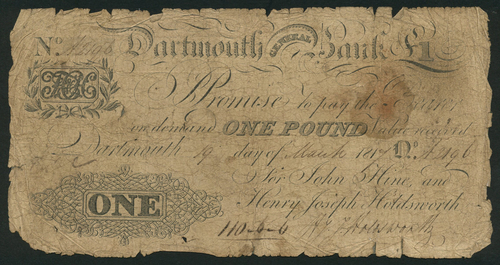 No. Dartmouth GENERAL Bank £1
I Promise to pay the Bearer
on demand ONE POUND Value received
Dartmouth 19 day of March 1817 No.
For John Hine, and
ONE Henry Joseph Holdsworth
110-6-6 Holdsworth